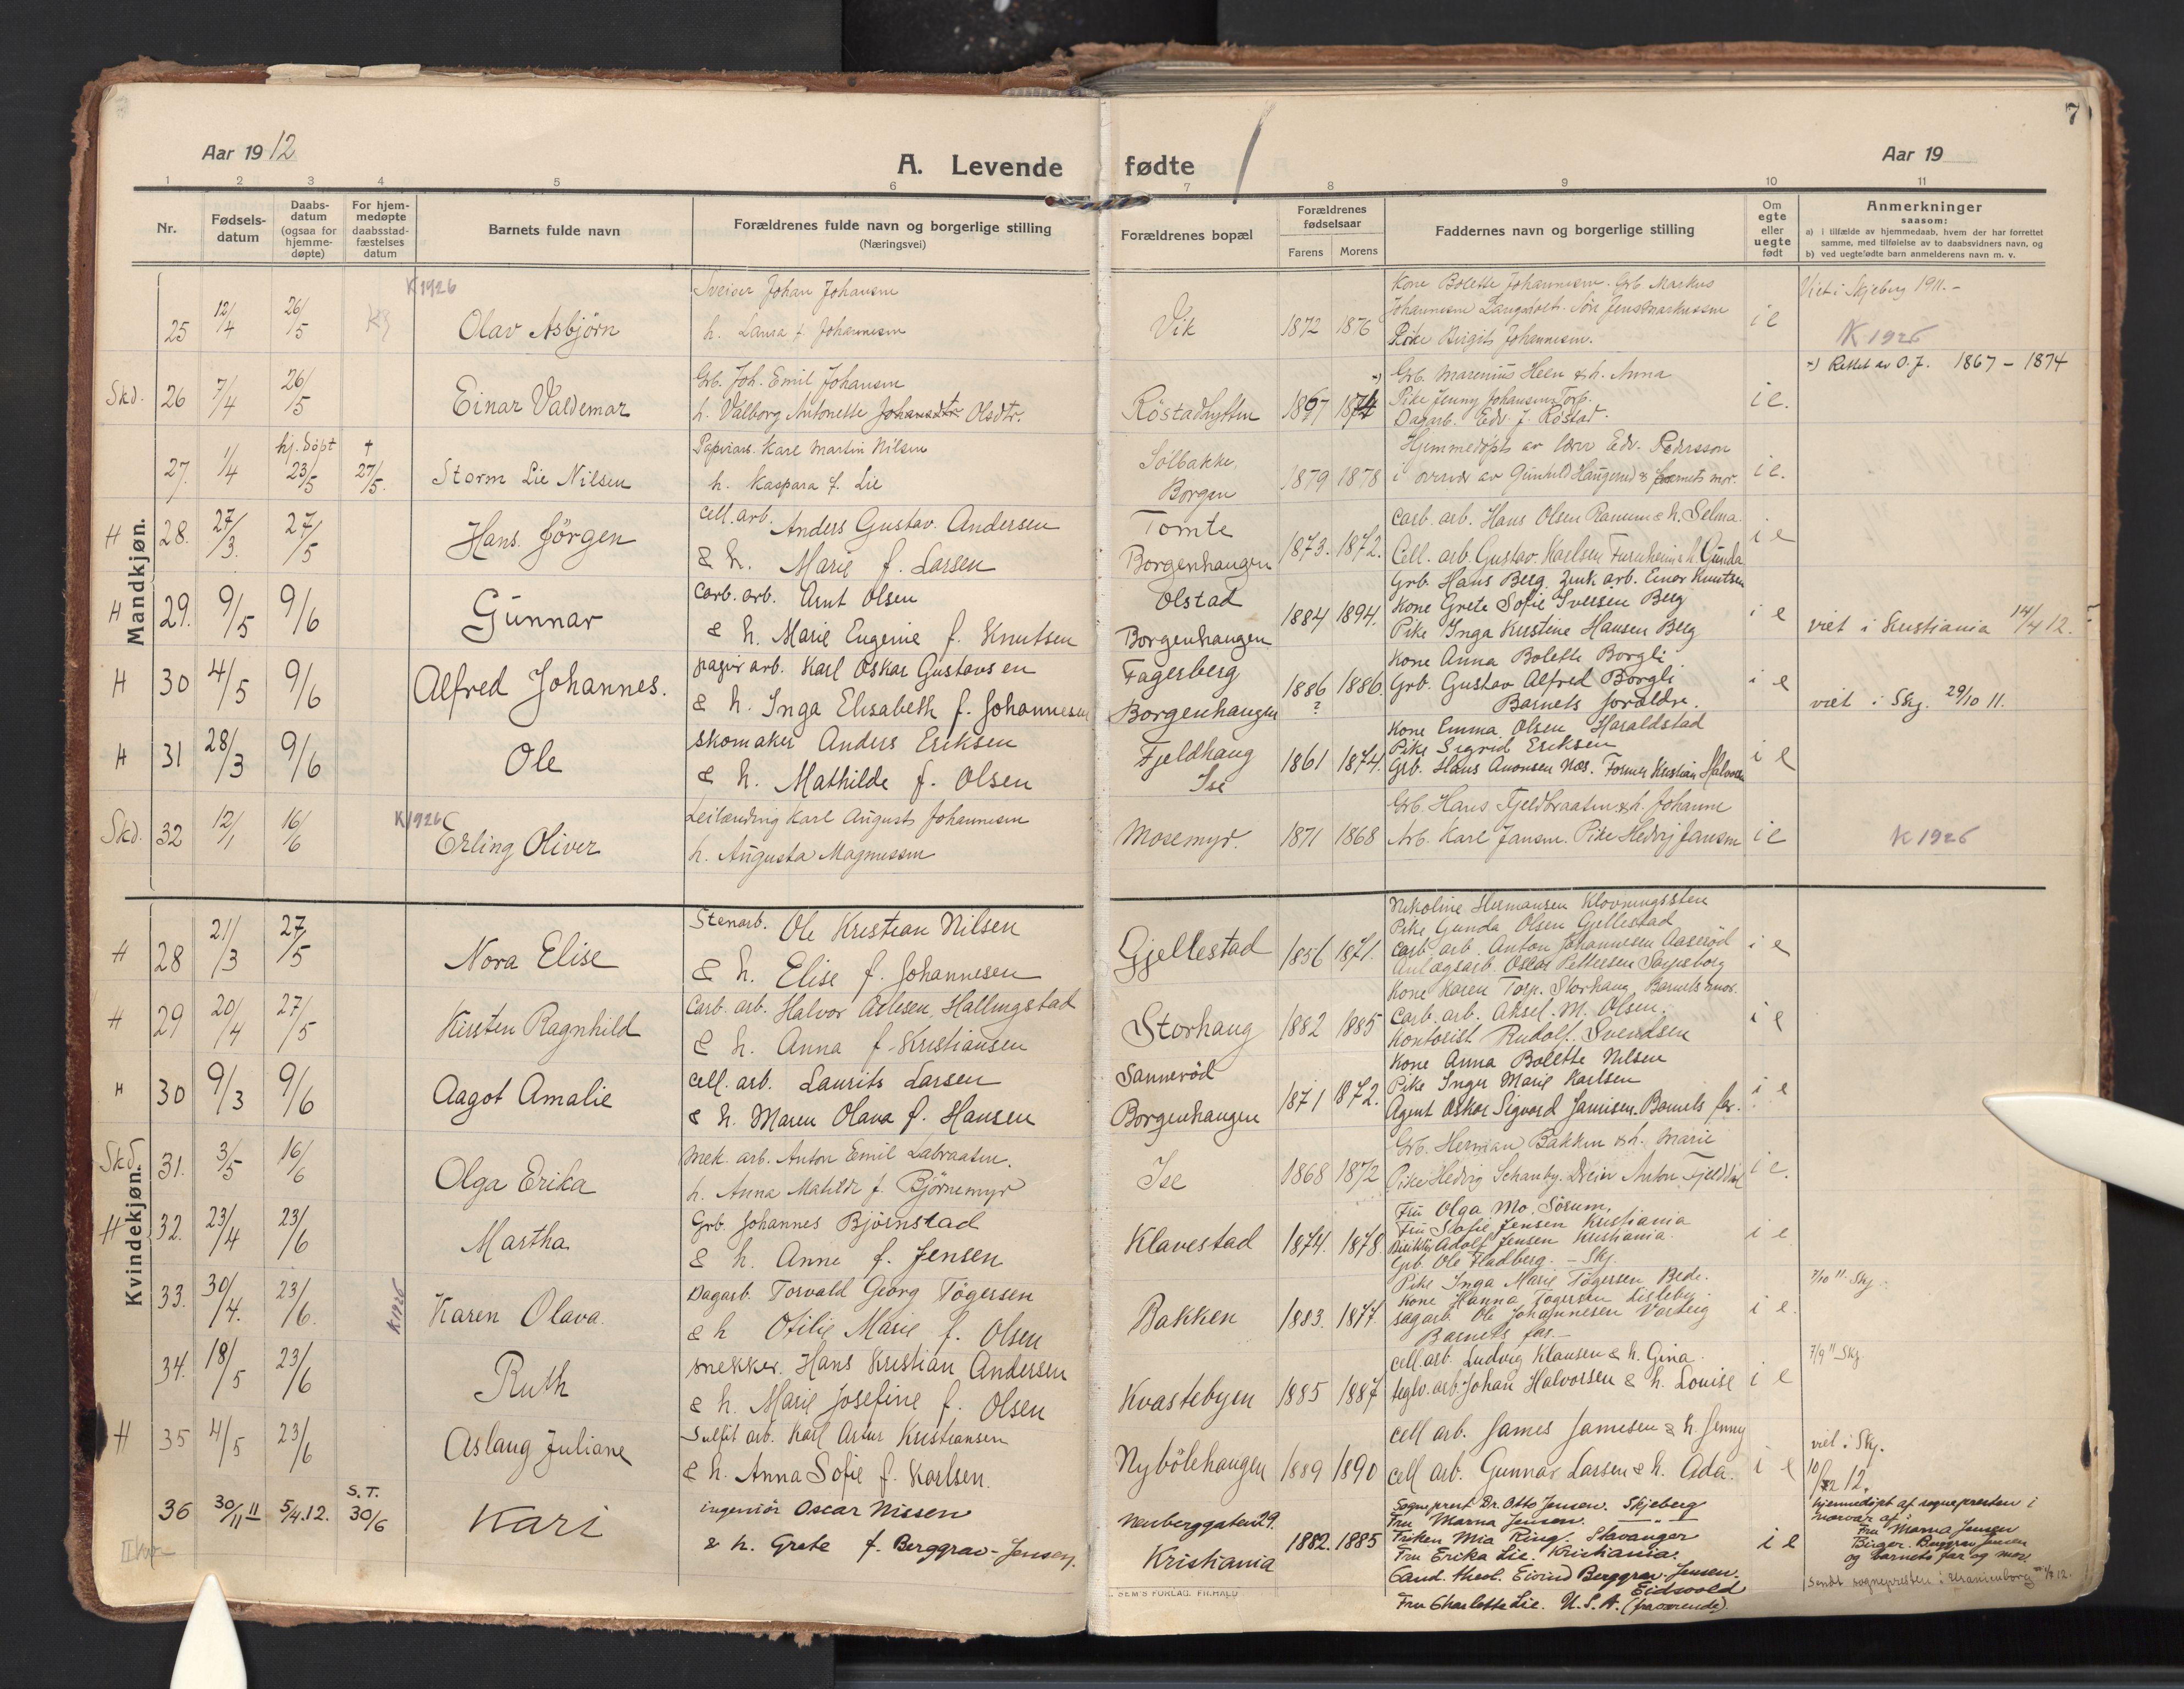 7
Aar 1912
A. Levende fødte
Aar 19
1 2 3 4 5 6 7 8 9 10 11
Nr.
Fødsels-datum
Daabs-datum (ogsaa for hjemme-døpte)
For hjem-medøpte daabsstad-fæstelses datum
Barnets fulde navn
Forældrenes fulde navn og borgerlige stilling
(Næringsvei)
Forældrenes bopæl
Forældrenes fødselsaar
Farens Morens
Faddernes navn og borgerlige stilling
Om egte eller uegte født
Anmerkninger
saasom:
a) i tilfælde av hjemmedaab, hvem der har forrettet
samme, med tilføielse av to daabsvidners navn, og
b) ved uegtefødte barn anmelderens navn m. v.
Mandkjøn.
K 1926
25 12/4 26/5 Olav Asbjörn
Sveiser Johan Johansen
h. Laura f. Johannesen
Vik 1872 1876
Kone Bolette Johannesen. Grb. Markus
Johannesen Langholt. Jens Markussen
Pike Birgit Johannesen.
i e
Viet i Skjeberg 1911.-
K 1926
Skd. 26 7/4 26/5 Einar Valdemar
Grb. Joh. Emil Johansen
h. Valborg Antonette Johansdtr. Olsdtr.
Röstadhytten 1867 1874
Grb. Marenius Heen & h. Anna
Pike Jenny Johansen Torp.
Dagarb. Edv. J. Röstad.
i e.
Rettet av O.J. 1867 - 1874
27. 1/4 hj. døpt 23/5 † 27/5. Storm Lie Nilsen
Papirarb. Karl Martin Nilsen
h. Kaspara f. Lie
Solbakke, Borgen 1879 1878
Hjemmedøpt av lærer Edv. Pedersson
i overvær av Gunhild Haugerud & barnets mor.
i e.
H 28. 27/3. 27/5 Hans Jörgen
Cell. arb. Anders Gustav Andersen
& h. Marie f. Larsen
Tomte Borgenhaugen 1873. 1872.
Carb. arb. Hans Olsen Ranum & h. Selma.
Cell. arb. Gustav Karlsen Furuheim & h. Gunda
i e
H 29. 9/5 9/6 Gunnar
Carb. arb. Arnt Olsen
& h. Marie Eugenie f. Knutsen
Olstad Borgenhaugen 1884 1894.
Grb. Hans Berg. Zink arb. Einar Knutsen
Kone Grete Sofie Iversen Berg
Pike Inga Kristine Hansen Berg
i e
viet i Kristiania 14/4 12.
H 30 4/5 9/6 Alfred Johannes.
papir arb. Karl Oskar Gustavsen
& h. Inga Elisabeth f. Johannesen
Fagerberg Borgenhaugen 1886 ? 1886.
Kone Anna Bolette Borgli.
Grb. Gustav Alfred Borgli
Barnets forældre.
i e
viet i Skj. 29/10 11.
H 31 28/3 9/6 Ole
Skomaker Anders Eriksen
& h. Mathilde f. Olsen
Fjeldhaug Ise 1861 1874.
Kone Emma Olsen Haraldstad
Pike Sigrid Eriksen
Grb. Hans Anonsen Næs. Former Kristian Halvorsen
i e
Skd. 32 12/1 16/6 K 1926 Erling Oliver
Leilænding Karl August Johannesen
h. Augusta Magnussen
Mosemyr. 1871 1868
Grb. Hans Fjeldbraaten & h. Johanne
Arb. Karl Jansen. Pike Hedvig Jansen
i e
K 1926
Kvindekjøn.
H 28 21/3 27/5 Nora Elise
Stenarb. Ole Kristian Nilsen
& h. Elise f. Johannesen
Gjellestad 1856 1871.
Nikoline Hermansen Klovningssten
Pike Gunda Olsen Gjellestad
Carb. arb. Anton Johannesen Aaserød
Anlægsarb. Oscar Pettersen Sarpsborg
i e
H 29 20/4 27/5 Kirsten Ragnhild
Carb. arb. Halvor Hallingstad
& h. Anna f. Kristiansen
Storhaug 1882 1885
Kone Karen Torp. Storhaug Barnets mor.
Carb. arb. Aksel. M. Olsen.
Kontorist Rudolf. Svendsen
i e
H 30 9/3 9/6 Aagot Amalie
Cell. arb. Laurits Larsen
& h. Maren Olava f. Hansen
Sannerød Borgenhaugen 1871 1872.
Kone Anna Bolette Nilsen
Pike Inger Marie Karlsen
Agent Oskar Sigvard Jamisen. Barnets far.
i e
Skd. 31. 3/5 16/6 Olga Erika
Mek. arb. Anton Emil Labraaten.
h. Anna Matilde f. Bjørnemyr
Ise 1868 1872
Grb. Herman Bakken & h. Marie
Pike Hedvig Schanby. Dreier Anton Fjelddal
i e.
H 32. 23/4 23/6 Martha
Grb. Johannes Bjørnstad
& h. Anne f. Jensen
Klavestad 1874. 1878.
Fru Olga Mo. Sørum.
Fru Sofie Jensen Kristiania
Adolf Jensen Kristiania.
Grb. Ole Fladberg. - Skj.
i e.
33. 30/4. 23/6. K 1926 Karen Olava.
Dagarb. Torvald Georg Tögersen
& h Otilie Marie f. Olsen
Bakken 1883. 1877.
Pike Inga Marie Tögersen Bede.
Kone Hanna Tögersen Lisleby.
sagarb. Ole Johannesen Varteig
Barnets far.-
i e.
7/10 11. Skj.
34. 18/5 23/6 Ruth
snekker. Hans Kristian Andersen
& h. Marie Josefine f. Olsen
Kvastebyen 1885 1887
Cell. arb. Ludvig Klausen & h. Gina.
teglv. arb. Johan Halvorsen & h. Louise
i e
7/9 11 Skj.
H 35 4/5 23/6 Aslaug Juliane
Sulfit arb. Karl Artur Kristiansen
& h. Anna Sofie f. Karlsen.
Nybölehaugen 1889 1890
Cell arb. James Jamesen & h. Jenny
cell arb. Gunnar Larsen & h. Ada.
i e
viet i Skj.
12.
36 30/11 11 5/4.12. S.T. 30/6 Kari
ingeniør Oscar Nissen
& h. Grete f. Berggrav-Jensen.
Neuberggaten 29. Kristiania 1882. 1885
Sogneprest Dr. Otto Jensen. Skjeberg
Fru Marna Jensen. — " —
Frøken Mia Ring. Stavanger
Fru Erika Lie. Kristiania.
Cand. theol. Eivind Berggrav-Jensen. Eidsvold
Fru Charlotte Lie. U.S.A. (fraværende)
i e
hjemmedøpt af sognepresten i
nærvær af:
Fru Marna Jensen
Birger Berggrav Jensen
og barnets far og mor.
Sendt sognepresten i Uranienborg
SEM'S FORLAG, FR.HALD